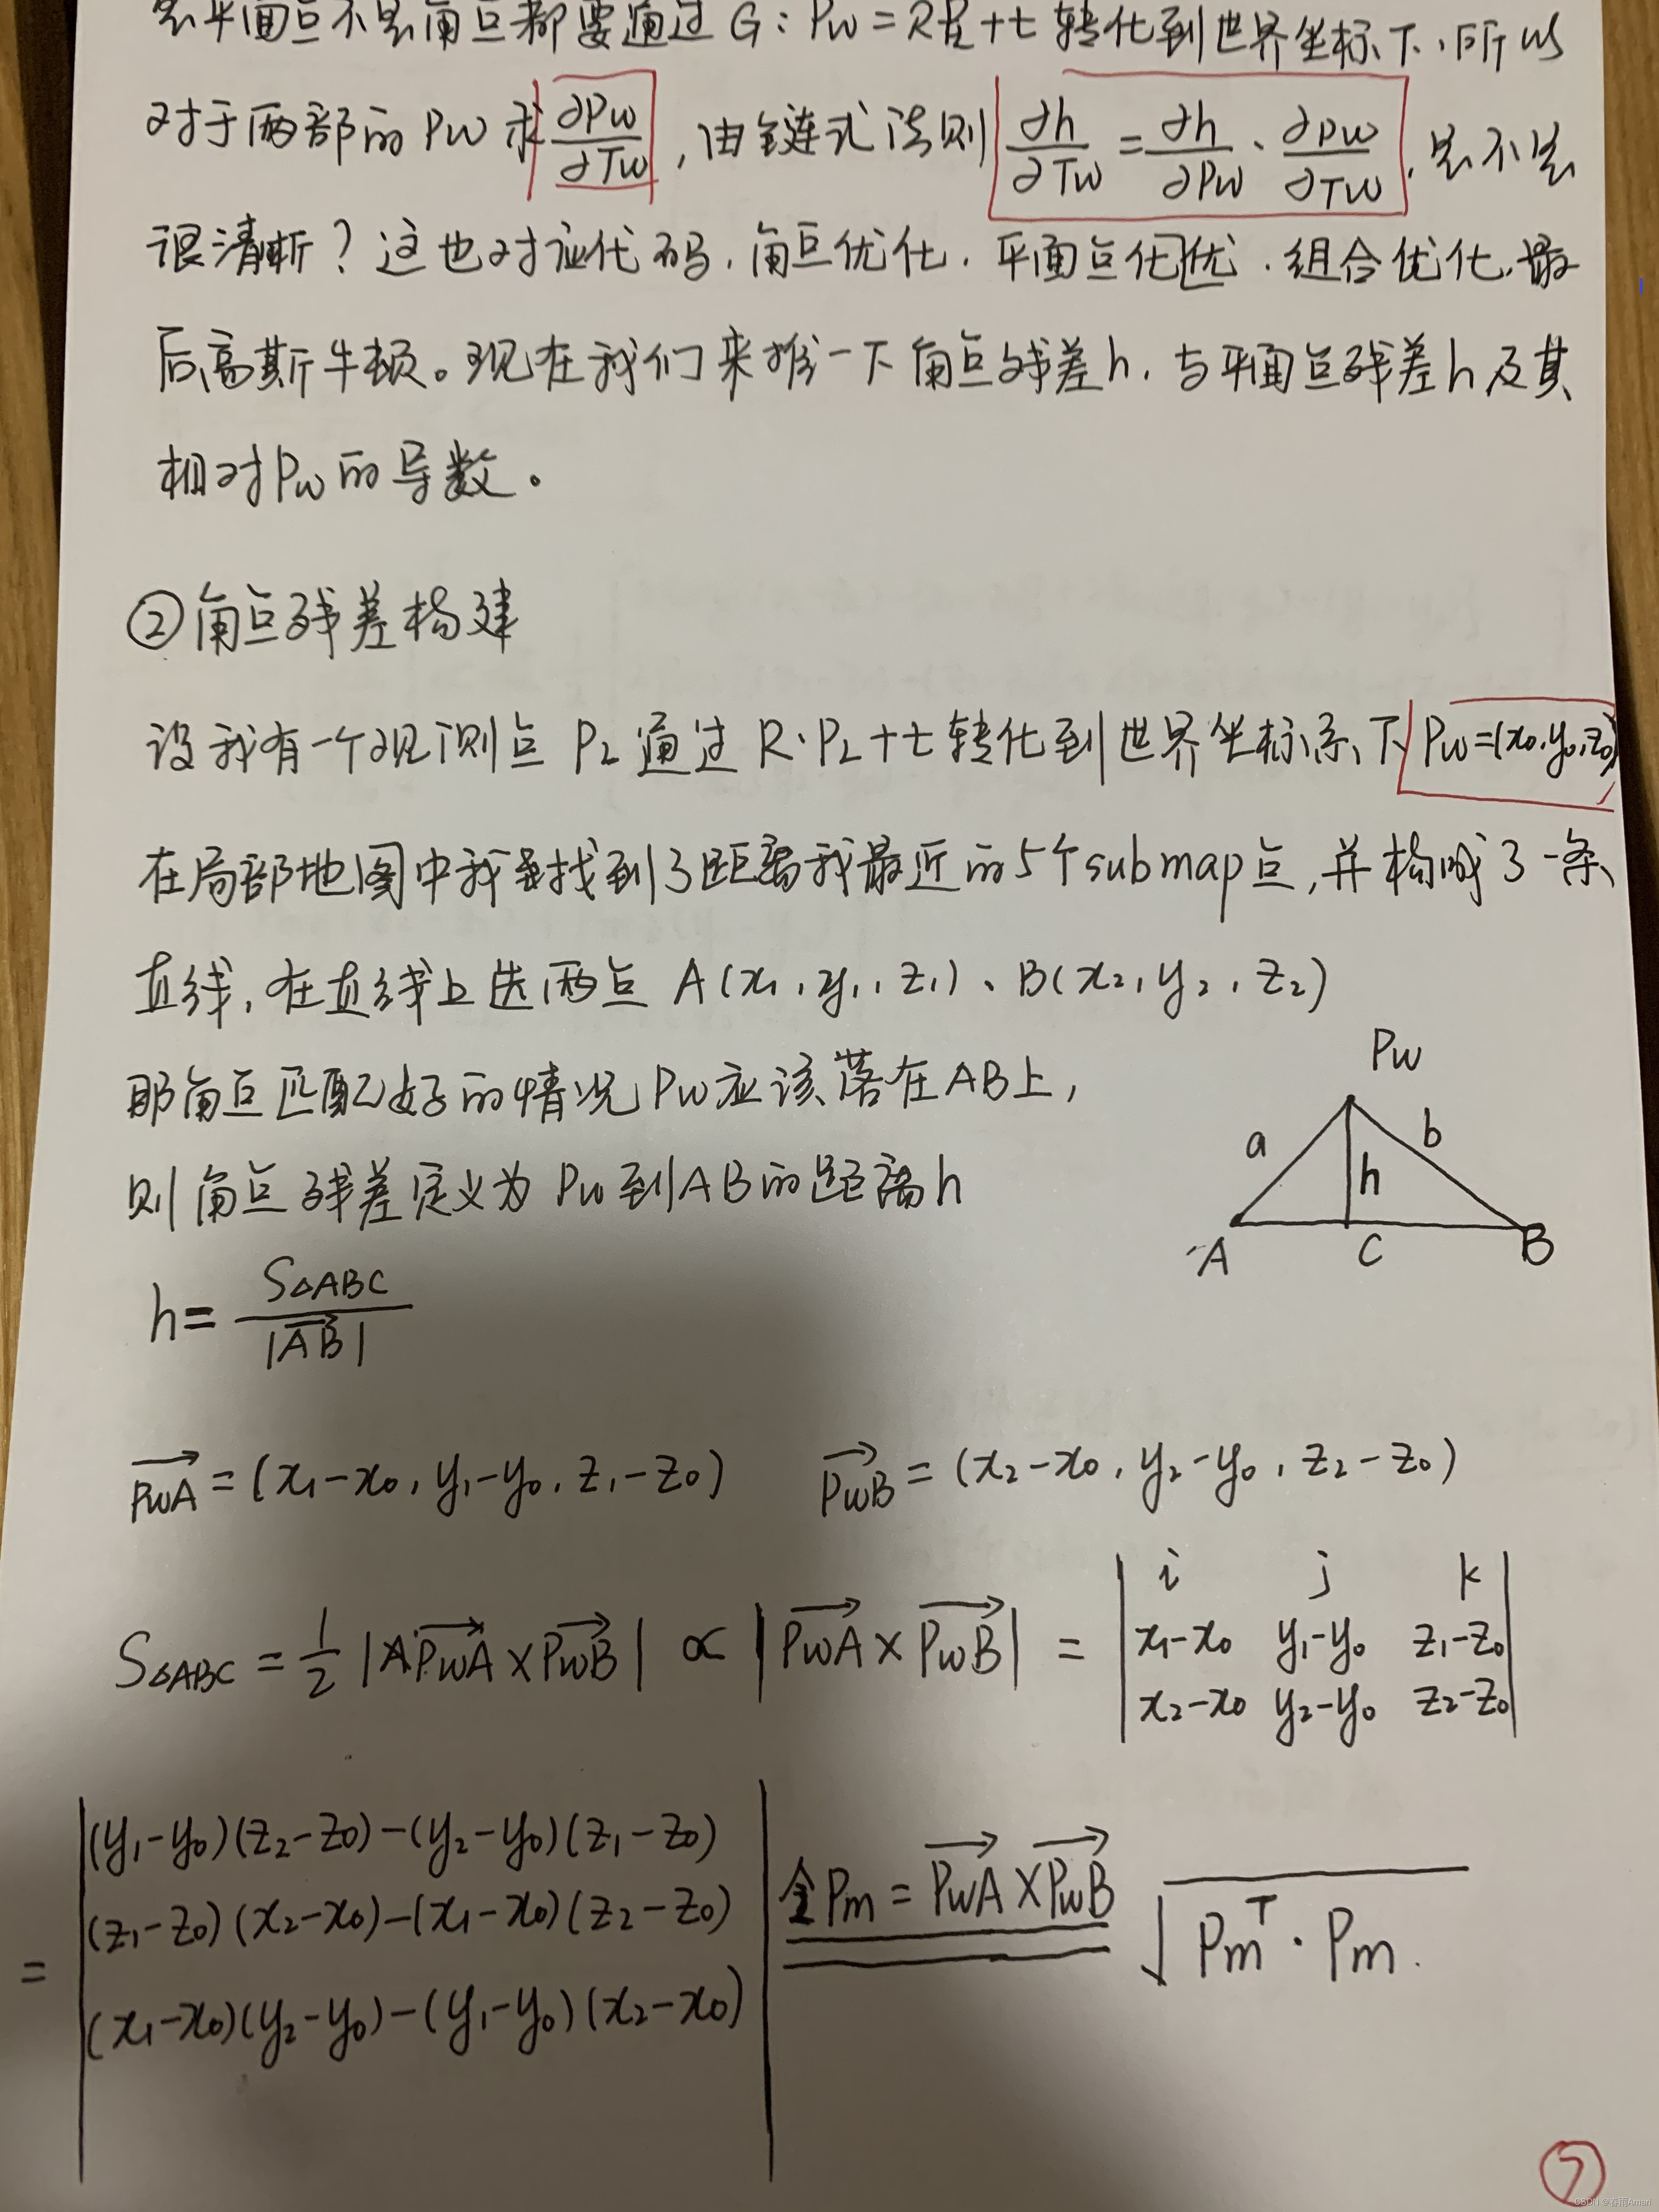 是平面点不是角点都要通过G:Pw=RPL+t转化到世界坐标下,所以
对于两部的Pw求 ∂Pw/∂Tw ,由链式法则 ∂h/∂Tw = ∂h/∂Pw · ∂Pw/∂Tw ,是不是
很清晰?这也对应代码,角点优化,平面点优化,组合优化,最
后高斯牛顿。现在我们来推一下角点残差h,与平面点残差h及其
相对Pw的导数。
②角点残差构建
设我有一个观测点 PL 通过 R·PL+t 转化到世界坐标系下 Pw=(x0,y0,z0)
在局部地图中我寻找到了距离我最近的5个submap点,并构成了一条
直线,在直线上选两点 A(x1,y1,z1)、B(x2,y2,z2)
那角点匹配好的情况Pw应该落在AB上,
则角点残差定义为 Pw到AB的距离h
Pw
a
b
h
A
C
B
h= S△ABC / |AB|
PwA=(x1-x0,y1-y0,z1-z0) PwB=(x2-x0,y2-y0,z2-z0)
S△ABC = 1/2 |PwA×PwB| ∝ |PwA×PwB| =
i j k
x1-x0 y1-y0 z1-z0
x2-x0 y2-y0 z2-z0
=
(y1-y0)(z2-z0)-(y2-y0)(z1-z0)
(z1-z0)(x2-x0)-(x1-x0)(z2-z0)
(x1-x0)(y2-y0)-(y1-y0)(x2-x0)
令Pm=PwA×PwB √(Pm^T·Pm)
⑦
CSDN @春雨Amari